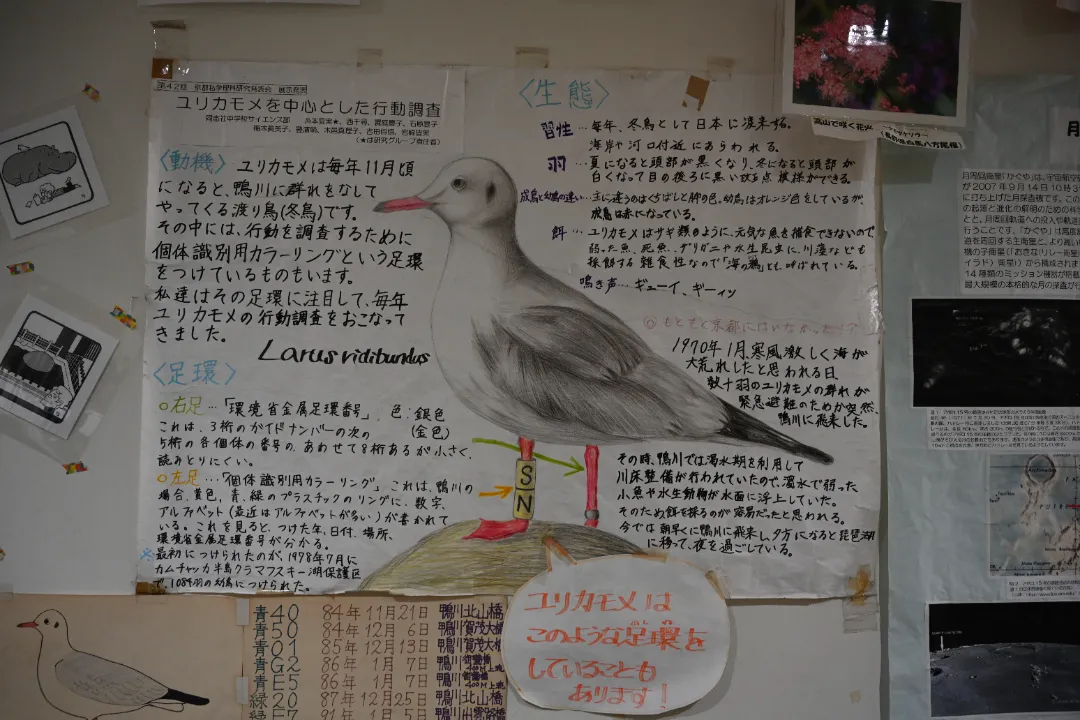 第42回 京都私学理科研究発表会 展示発表
ユリカモメを中心とした行動調査
同志社中学校サイエンス部
(★は研究グループ責任者)
〈動機〉 ユリカモメは毎年11月頃
になると、鴨川に群れをなして
やってくる渡り鳥(冬鳥)です。
その中には、行動を調査するために
個体識別用カラーリングという足環
をつけているものもいます。
私達はその足環に注目して、毎年
ユリカモメの行動調査をおこなって
きました。
Larus ridibundus
〈足環〉
○右足…「環境省金属足環番号」, 色:銀色
(金色)
これは、3桁のガイドナンバーの次の
5桁の各個体の番号の、あわせて8桁あるが小さく、
読みとりにくい。
○左足…「個体識別用カラーリング」、これは、鴨川の
場合、黄色、青、緑のプラスチックのリングに、数字、
アルファベット(最近はアルファベットが多い)が書かれて
いる。これを見ると、つけた年、日付、場所、
環境省金属足環番号が分かる。
※最初につけられたのが、1978年7月に
カムチャッカ半島クラマフスキー湖保護区
で、1084羽の幼鳥につけられた。
〈生態〉
習性…毎年、冬鳥として日本に渡来する。
海岸や河口付近にあらわれる。
羽…夏になると頭部が黒くなり、冬になると頭部が
白くなって目の後ろに黒い斑点模様ができる。
成鳥と幼鳥の違い…主に違うのはくちばしと脚の色。幼鳥はオレンジ色をしているが、
成鳥は赤になっている。
餌…ユリカモメはサギ類のように、元気な魚を捕食できないので
弱った魚、死魚、ザリガニや水生昆虫に、川藻なども
採餌する雑食性なので「海の鴉」とも呼ばれている。
鳴き声…ギューイ、ギーィッ
◎もともと京都にはいなかった!?
1970年1月、寒風激しく海が
大荒れしたと思われる日、
数十羽のユリカモメの群れが
緊急避難のためか突然、
鴨川に飛来した。
その時、鴨川では渇水期を利用して
川床整備が行われていたので、濁水で弱った
小魚や水生動物が水面に浮上していた。
そのため餌を採るのが容易だったと思われる。
今では朝早くに鴨川に飛来し、夕方になると琵琶湖
に移って、夜を過ごしている。
S
N
ユリカモメは
このような足環を
していることも
あります!
青40 84年11月21日 鴨川北山橋
青50 84年12月6日 鴨川賀茂大橋
青01 85年12月13日 鴨川賀茂大橋
青G2 86年1月7日 鴨川御薗橋400M上流
青E5 86年1月7日 鴨川御薗橋400M上流
緑20 87年12月25日 鴨川北山橋
緑E7 91年1月5日 鴨川出雲路橋
高山で咲く花火
月
が2007年9月14日10時3
に打ち上げた月探査機です。
の起源と進化の解明のための科
と、月周回軌道への投入や軌道
行うことです。「かぐや」は高度
道を周回する主衛星と、より高い
機の子衛星(「おきな(リレー衛星)
14種類のミッション機器が搭載
最大規模の本格的な月の探査が行